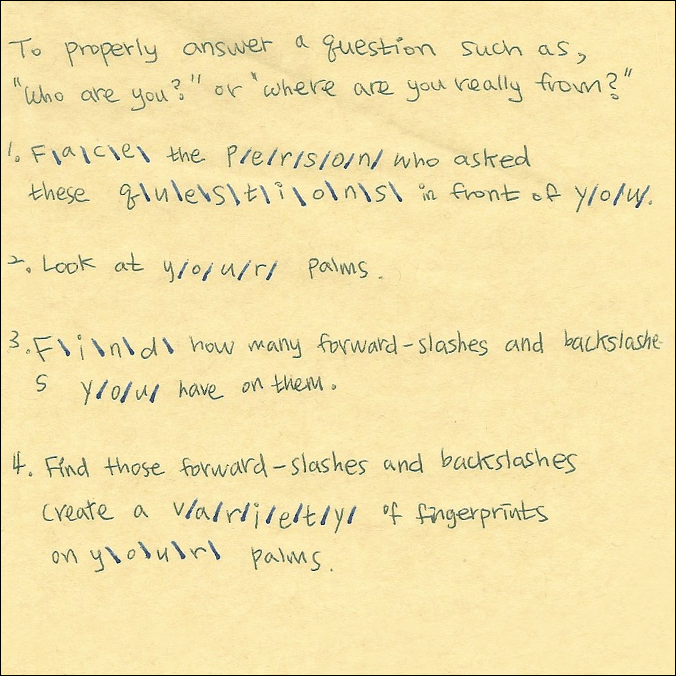 To properly answer a question such as,
"Who are you?" or "where are you really from?"
1. F\a\c\e\ the P/e/r/s/o/n/ who asked
these q\u\e\s\t\i\o\n\s\ in front of y/o/u.
2. Look at y/o/u/r/ palms.
3. F\i\n\d\ how many forward-slashes and backslashe-
s y/o/u/ have on them.
4. Find those forward-slashes and backslashes
create a v/a/r/i/e/t/y/ of fingerprints
on y\o\u\r\ palms.